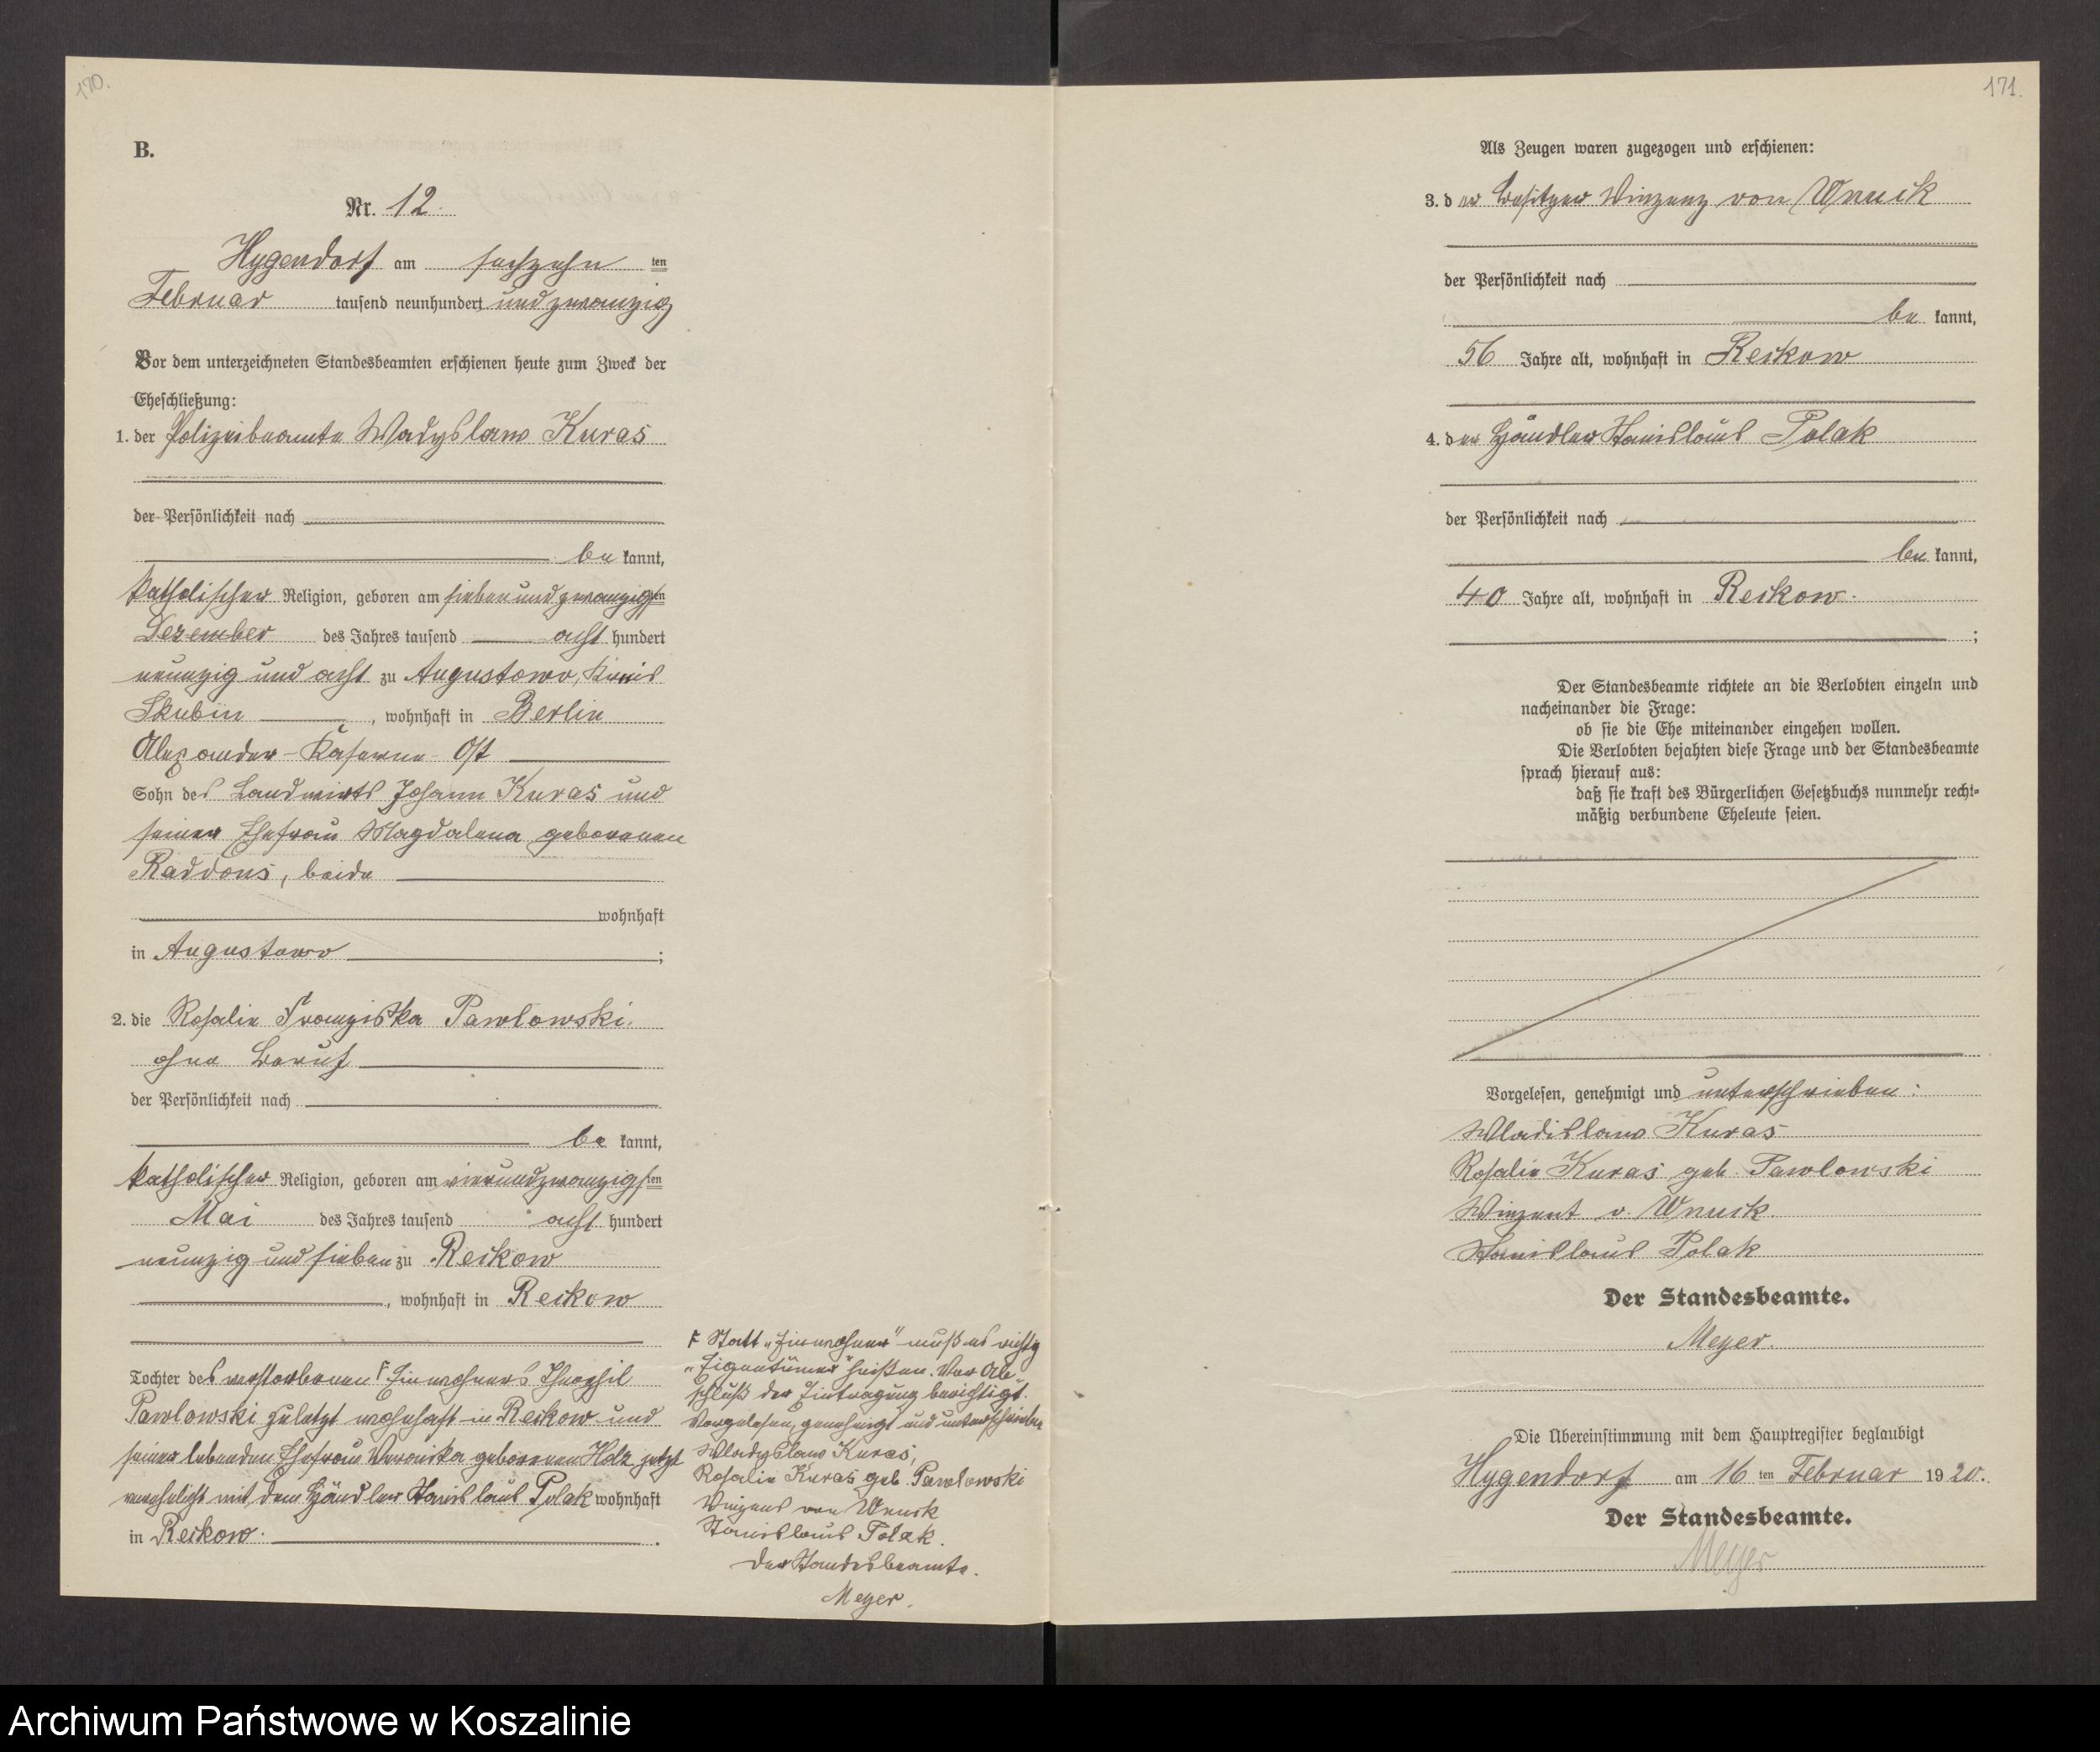 170.
B.
Nr. 12.
Hygendorf am sechzehn ten
Februar tausend neunhundert und zwanzig
Vor dem unterzeichneten Standesbeamten erschienen heute zum Zweck der
Eheschließung:
1. der Polizeibeamte Wladyslaw Kuras
der Persönlichkeit nach
be kannt,
katholischer Religion, geboren am siebenundzwanzigsten
Dezember des Jahres tausend acht hundert
neunzig und acht zu Augustowo, Kreis
Skubin, wohnhaft in Berlin
Alexander-Kaserne Ost
Sohn des Landwirts Johann Kuras und
seiner Ehefrau Magdalena geborenen
Raddons, beide
wohnhaft
in Augustowo ;
2. die Rosalie Franziska Pawlowski,
ohne Beruf
der Persönlichkeit nach
be kannt,
katholischer Religion, geboren am vierundzwanzigsten
Mai des Jahres tausend acht hundert
neunzig und sieben zu Reikow
, wohnhaft in Reikow
Tochter des verstorbenen F Einwohners Theophil
Pawlowski zuletzt wohnhaft in Reikow und
seiner lebenden Ehefrau Veronika geborenen Holz jetzt
verehelicht mit dem Händler Stanislaus Polak wohnhaft
in Reikow.
F Statt „Einwohner" muß es richtig
„Eigentümer" heißen. Vor Ab-
schluß der Eintragung berichtigt.
Vorgelesen, genehmigt und unterschrieben
Wladyslaw Kuras,
Rosalie Kuras geb. Pawlowski
Vinzens von Wnuck
Stanislaus Polak.
Der Standesbeamte.
Meyer.
171.
Als Zeugen waren zugezogen und erschienen:
3. der Besitzer Vinzenz von Wnuck
der Persönlichkeit nach
be kannt,
56 Jahre alt, wohnhaft in Reikow
4. der Händler Stanislaus Polak
der Persönlichkeit nach
be kannt,
40 Jahre alt, wohnhaft in Reikow.
;
Der Standesbeamte richtete an die Verlobten einzeln und
nacheinander die Frage:
ob sie die Ehe miteinander eingehen wollen.
Die Verlobten bejahten diese Frage und der Standesbeamte
sprach hierauf aus:
daß sie kraft des Bürgerlichen Gesetzbuchs nunmehr recht-
mäßig verbundene Eheleute seien.
Vorgelesen, genehmigt und unterschrieben:
Wladislaw Kuras
Rosalie Kuras geb. Pawlowski
Vinzent v. Wnuck
Stanislaus Polak
Der Standesbeamte.
Meyer.
Die Übereinstimmung mit dem Hauptregister beglaubigt
Hygendorf am 16 ten Februar 1920.
Der Standesbeamte.
Meyer
Archiwum Państwowe w Koszalinie